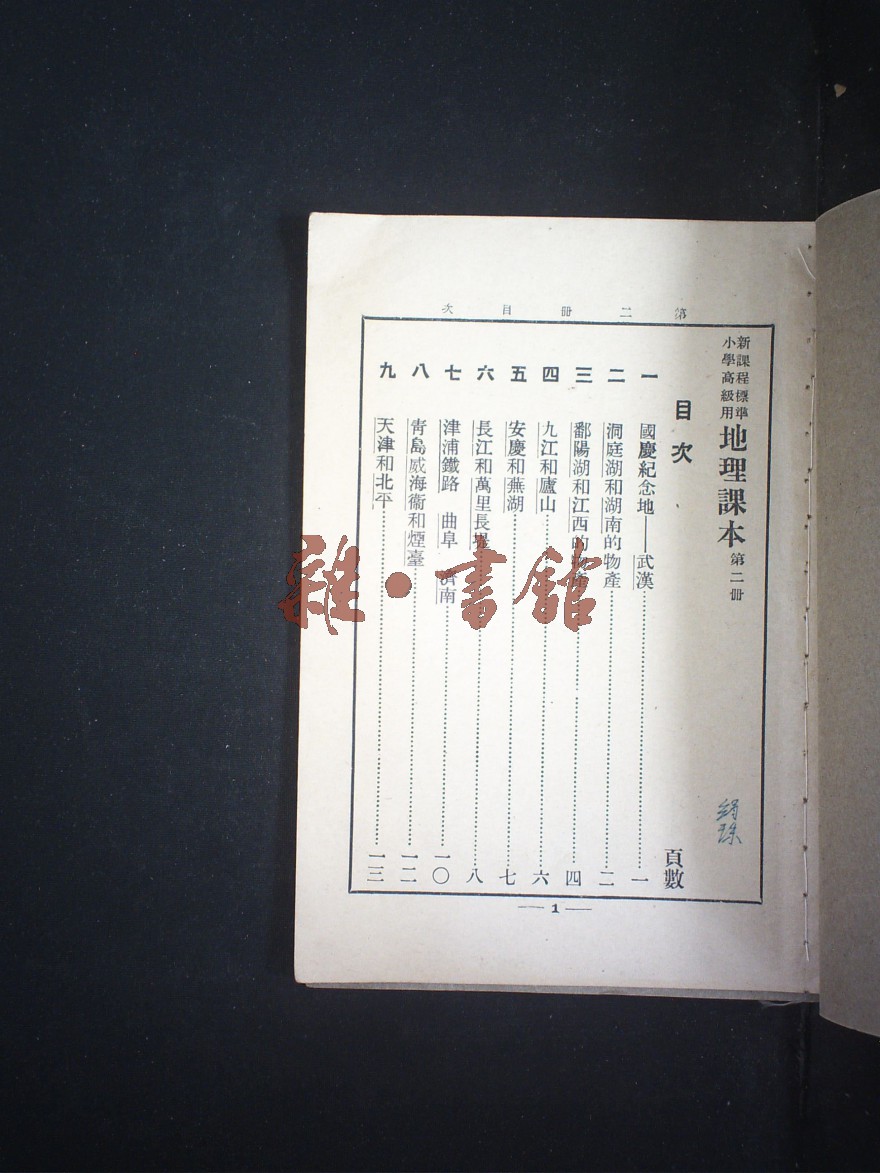 第二册目次
新課程標準
小學高級用
地理課本 第二册
目次
頁數
一 國慶紀念地——武漢 一
二 洞庭湖和湖南的物產 二
三 鄱陽湖和江西的物產 四
四 九江和廬山 六
五 安慶和蕪湖 七
六 長江和萬里長堤 八
七 津浦鐵路 曲阜 濟南 一〇
八 青島威海衞和煙臺 一二
九 天津和北平 一三
— 1 —
雜·書館